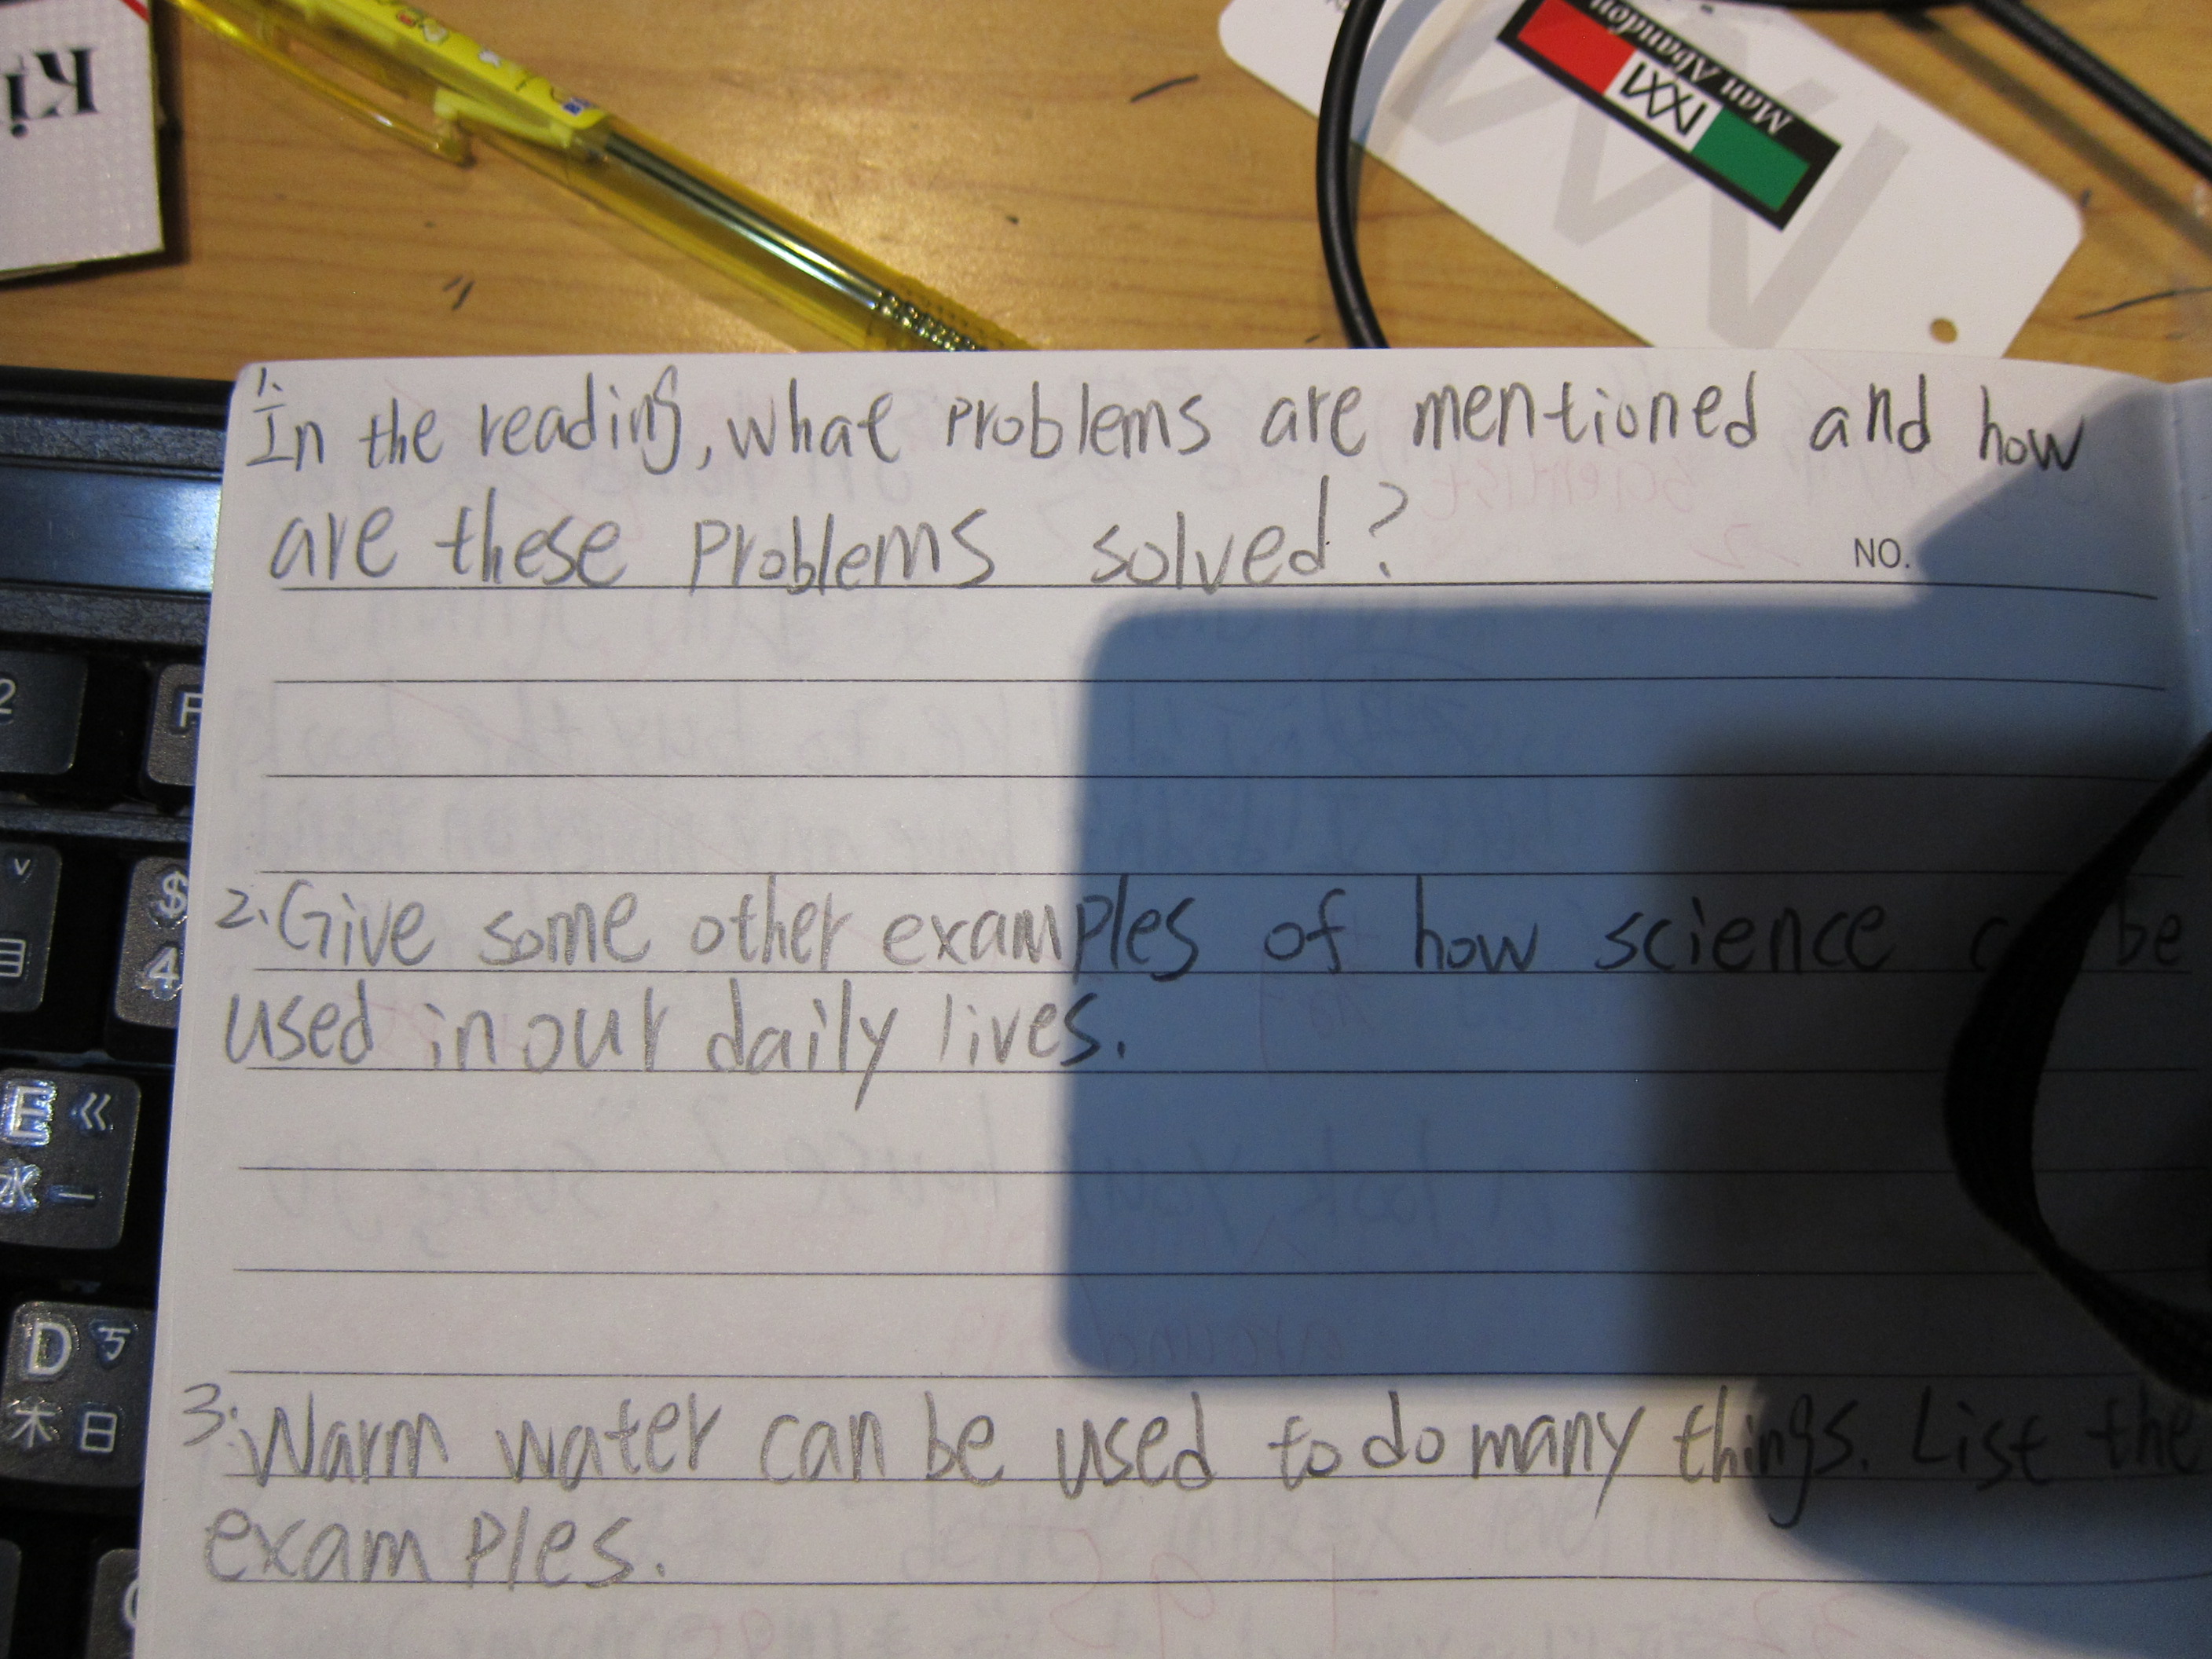 Ki
Man Abandon
1.
In the reading, what problems are mentioned and how
are these problems solved?
NO.
2. Give some other examples of how science be
used in our daily lives.
3. Warm water can be used to do many things. List the
examples.
2
F
$
4
E ㄍ
水 一
D ㄎ
木 日